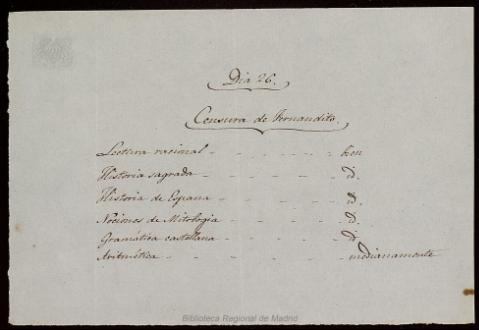 Dia 26.
Censura de Fernandito.
Lectura racional - - - - - - bien
Historia sagrada - - - - - - d.
Historia de España - - - - - - d.
Nociones de Mitologia - - - - - - d.
Gramática castellana - - - - - - d.
Aritmética - - - - - - medianamente
Biblioteca Regional de Madrid